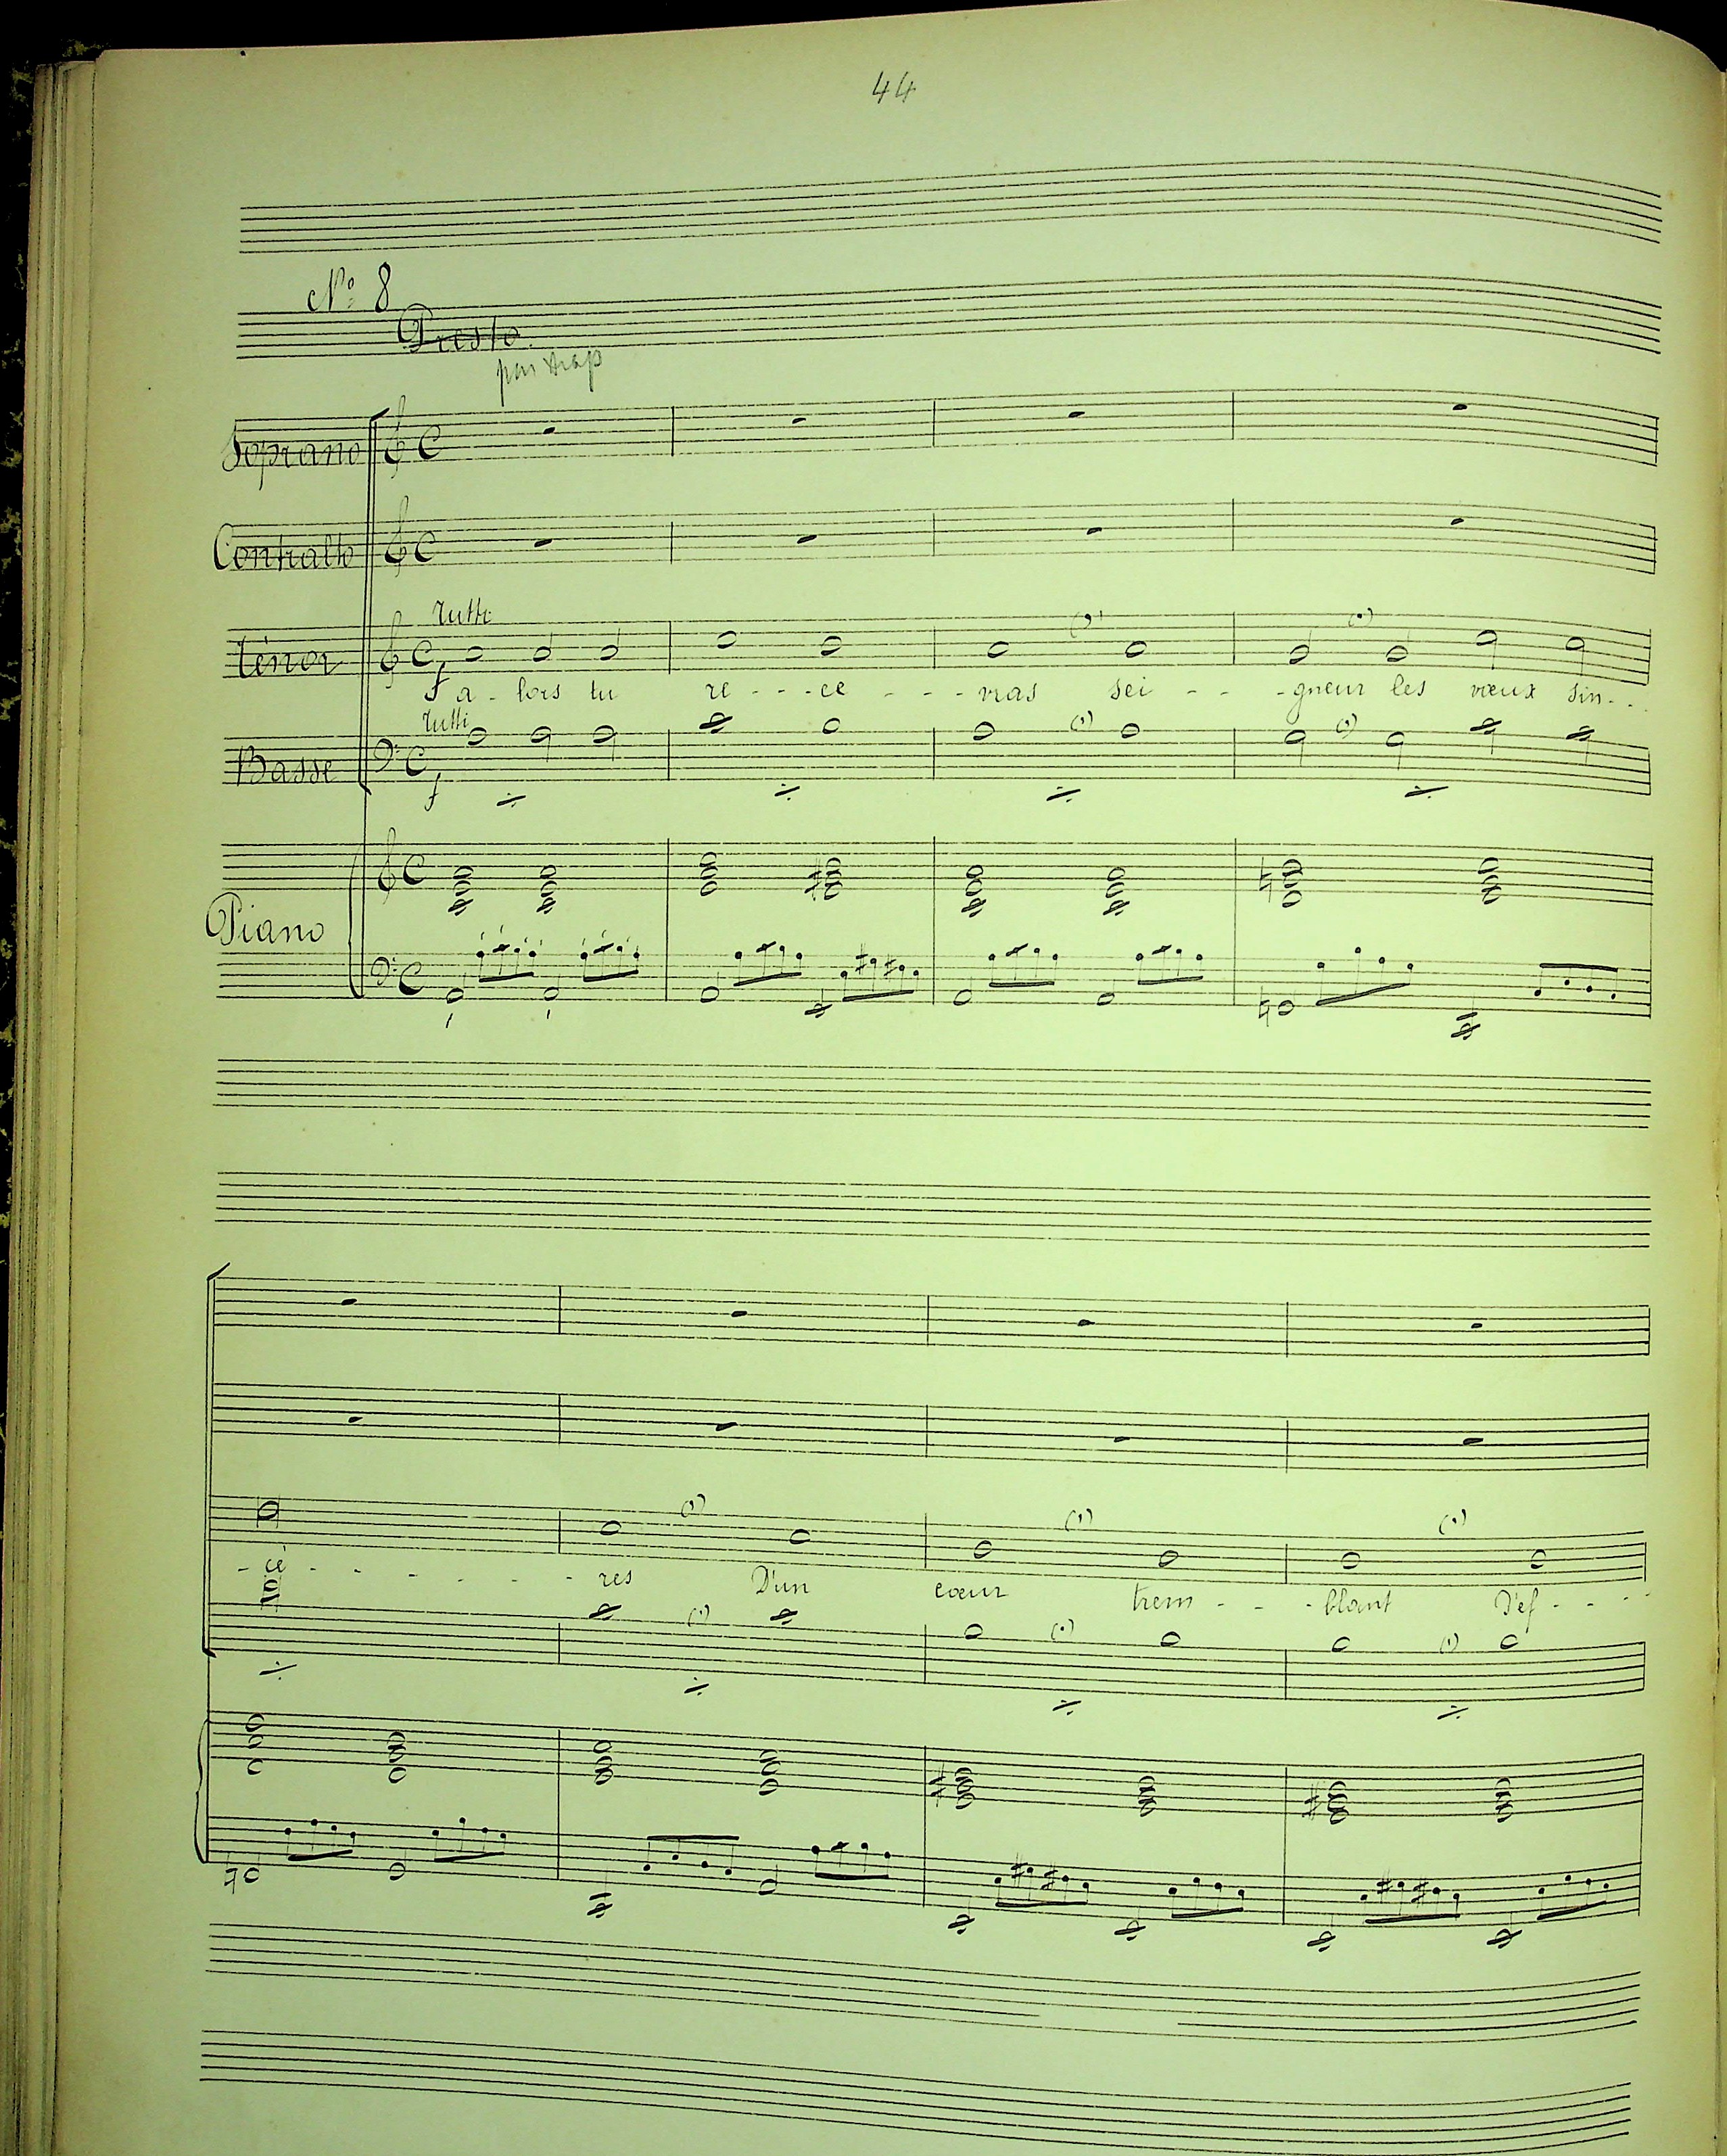 44
No 8
Presto.
pas trop
Soprano
Contralto
Tutti
Ténor
f a - lors tu re - - - ce - - - vras sei - - - gneur les vœux sin - - -
Tutti
Basse
f
Piano
- cè - - - - - - - res D'un cœur trem - - - blant D'ef - - - -